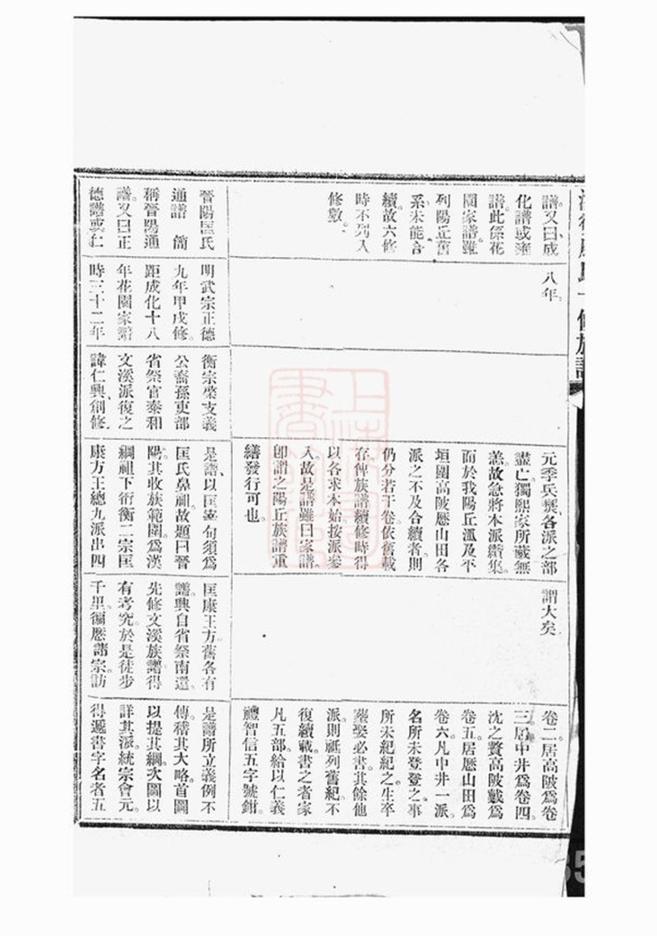 譜又曰成
化譜或雍
譜此係花
園家譜雖
列陽丘舊
系未能合
續故六修
時不列入
修數
八年
元季兵燹各派之部
盡亡獨熙家所藏無
恙故急將本派階集
而於我陽丘溫及平
垣園高陂歷山田各
派之不及合續者則
仍分若干卷依舊載
存俾族譜續修時得
以各求本始按派參
入故是譜雖曰家譜
卽謂之陽丘族譜重
繕發行可也
謂大矣
卷二居高陂爲卷
三居中井爲卷四
沈之贅高陂戴爲
卷五居歷山田爲
卷六凡中井一派
名所未登登之事
所未紀紀之生卒
塟娶必書其餘他
派則祗列舊紀不
復續載書之者家
凡五部給以仁義
禮智信五字號鉗
晉陽匡氏
通譜簡
稱晉陽通
譜又曰正
德譜或仁
明武宗正德
九年甲戌修
距成化十八
年花園家譜
時三十二年
衡宗榮支義
公裔孫吏部
省祭官泰和
文溪派復之
諱仁興創修
是譜以匡
句須爲
匡氏鼻祖故題曰晉
陽其收族範圍爲漢
綱祖下衍衡二宗匡
康方王總九派出四
匡康王方舊各有
譜興自省祭南還
先修文溪族譜得
有考究於是徒步
千里徧歷諸宗訪
是譜所立義例不
傳稽其大略首圖
以提其綱次圖以
詳其派統宗會元
得遞書字名者五